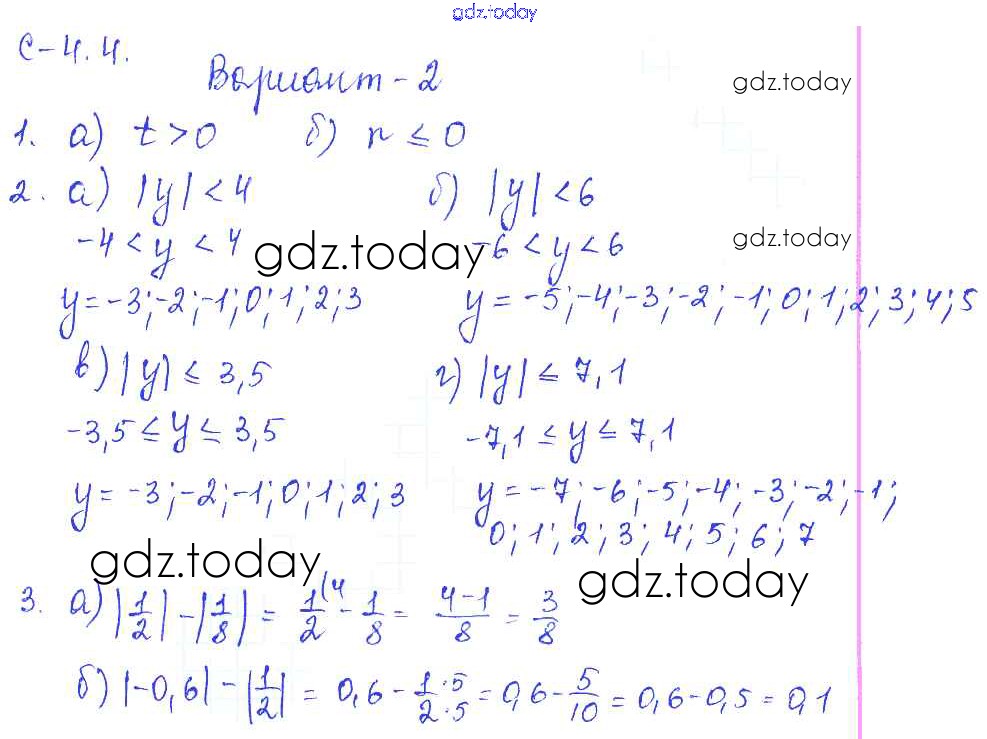 gdz.today
С-4.4.
Вариант-2
gdz.today
1. а) t > 0 б) n ≤ 0
2. а) |y| < 4 б) |y| < 6
-4 < y < 4 gdz.today -6 < y < 6 gdz.today
y = -3; -2; -1; 0; 1; 2; 3 y = -5; -4; -3; -2; -1; 0; 1; 2; 3; 4; 5
в) |y| ≤ 3,5 г) |y| ≤ 7,1
-3,5 ≤ y ≤ 3,5 -7,1 ≤ y ≤ 7,1
y = -3; -2; -1; 0; 1; 2; 3 y = -7; -6; -5; -4; -3; -2; -1;
0; 1; 2; 3; 4; 5; 6; 7
gdz.today gdz.today
3. а) |1/2| - |1/8| = 1/2 (4 - 1/8 = 4-1/8 = 3/8
б) |-0,6| - |1/2| = 0,6 - 1·5/2·5 = 0,6 - 5/10 = 0,6 - 0,5 = 0,1